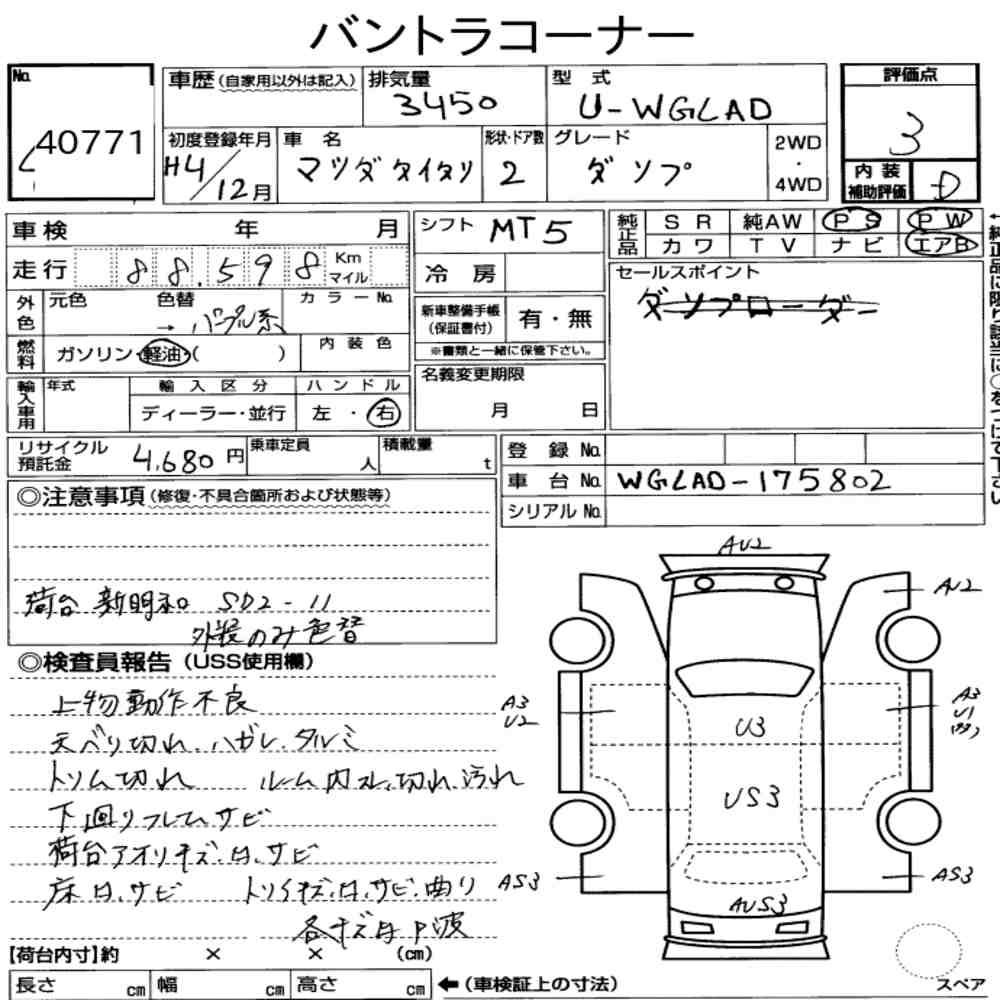 バントラコーナー
No. 40771
車歴 (自家用以外は記入)
排気量 3450
型式 U-WGLAD
評価点 3
初度登録年月 H4/12月
車名 マツダタイタン
形状・ドア数 2
グレード ダンプ
2WD・4WD
内装補助評価 D
車検 年 月
シフト MT5
純正品 SR 純AW PS PW
カワ TV ナビ エアB
走行 88,598 Km マイル
冷房
セールスポイント
ダンプローダー
外色 元色 色替 → パープル系 カラーNo.
新車整備手帳(保証書付) 有・無
※書類と一緒に保管下さい。
燃料 ガソリン・軽油・( ) 内装色
名義変更期限 月 日
輸入車用 年式 輸入区分 ハンドル
ディーラー・並行 左・右
リサイクル預託金 4,680円 乗車定員 人 積載量 t
登録No.
車台No. WGLAD-175802
シリアルNo.
←純正品に限り該当に○をつけて下さい
◎注意事項 (修復・不具合箇所および状態等)
荷台 新明和 SD2-11
外装のみ色替
◎検査員報告 (USS使用欄)
上物動作不良
天ベリ切れ、ハガレ、タルミ
トリム切れ ルーム内スレ、切れ、汚れ
下廻りフレームサビ
荷台アオリキズ、凹、サビ
床凹、サビ トリイキズ、凹、サビ、曲り
各キズ凹P波
AU2
AU2
A3
U2
A3
U1
U3
US3
AS3
AUS3
AS3
【荷台内寸】約 × × (cm)
長さ cm 幅 cm 高さ cm ←(車検証上の寸法)
スペア